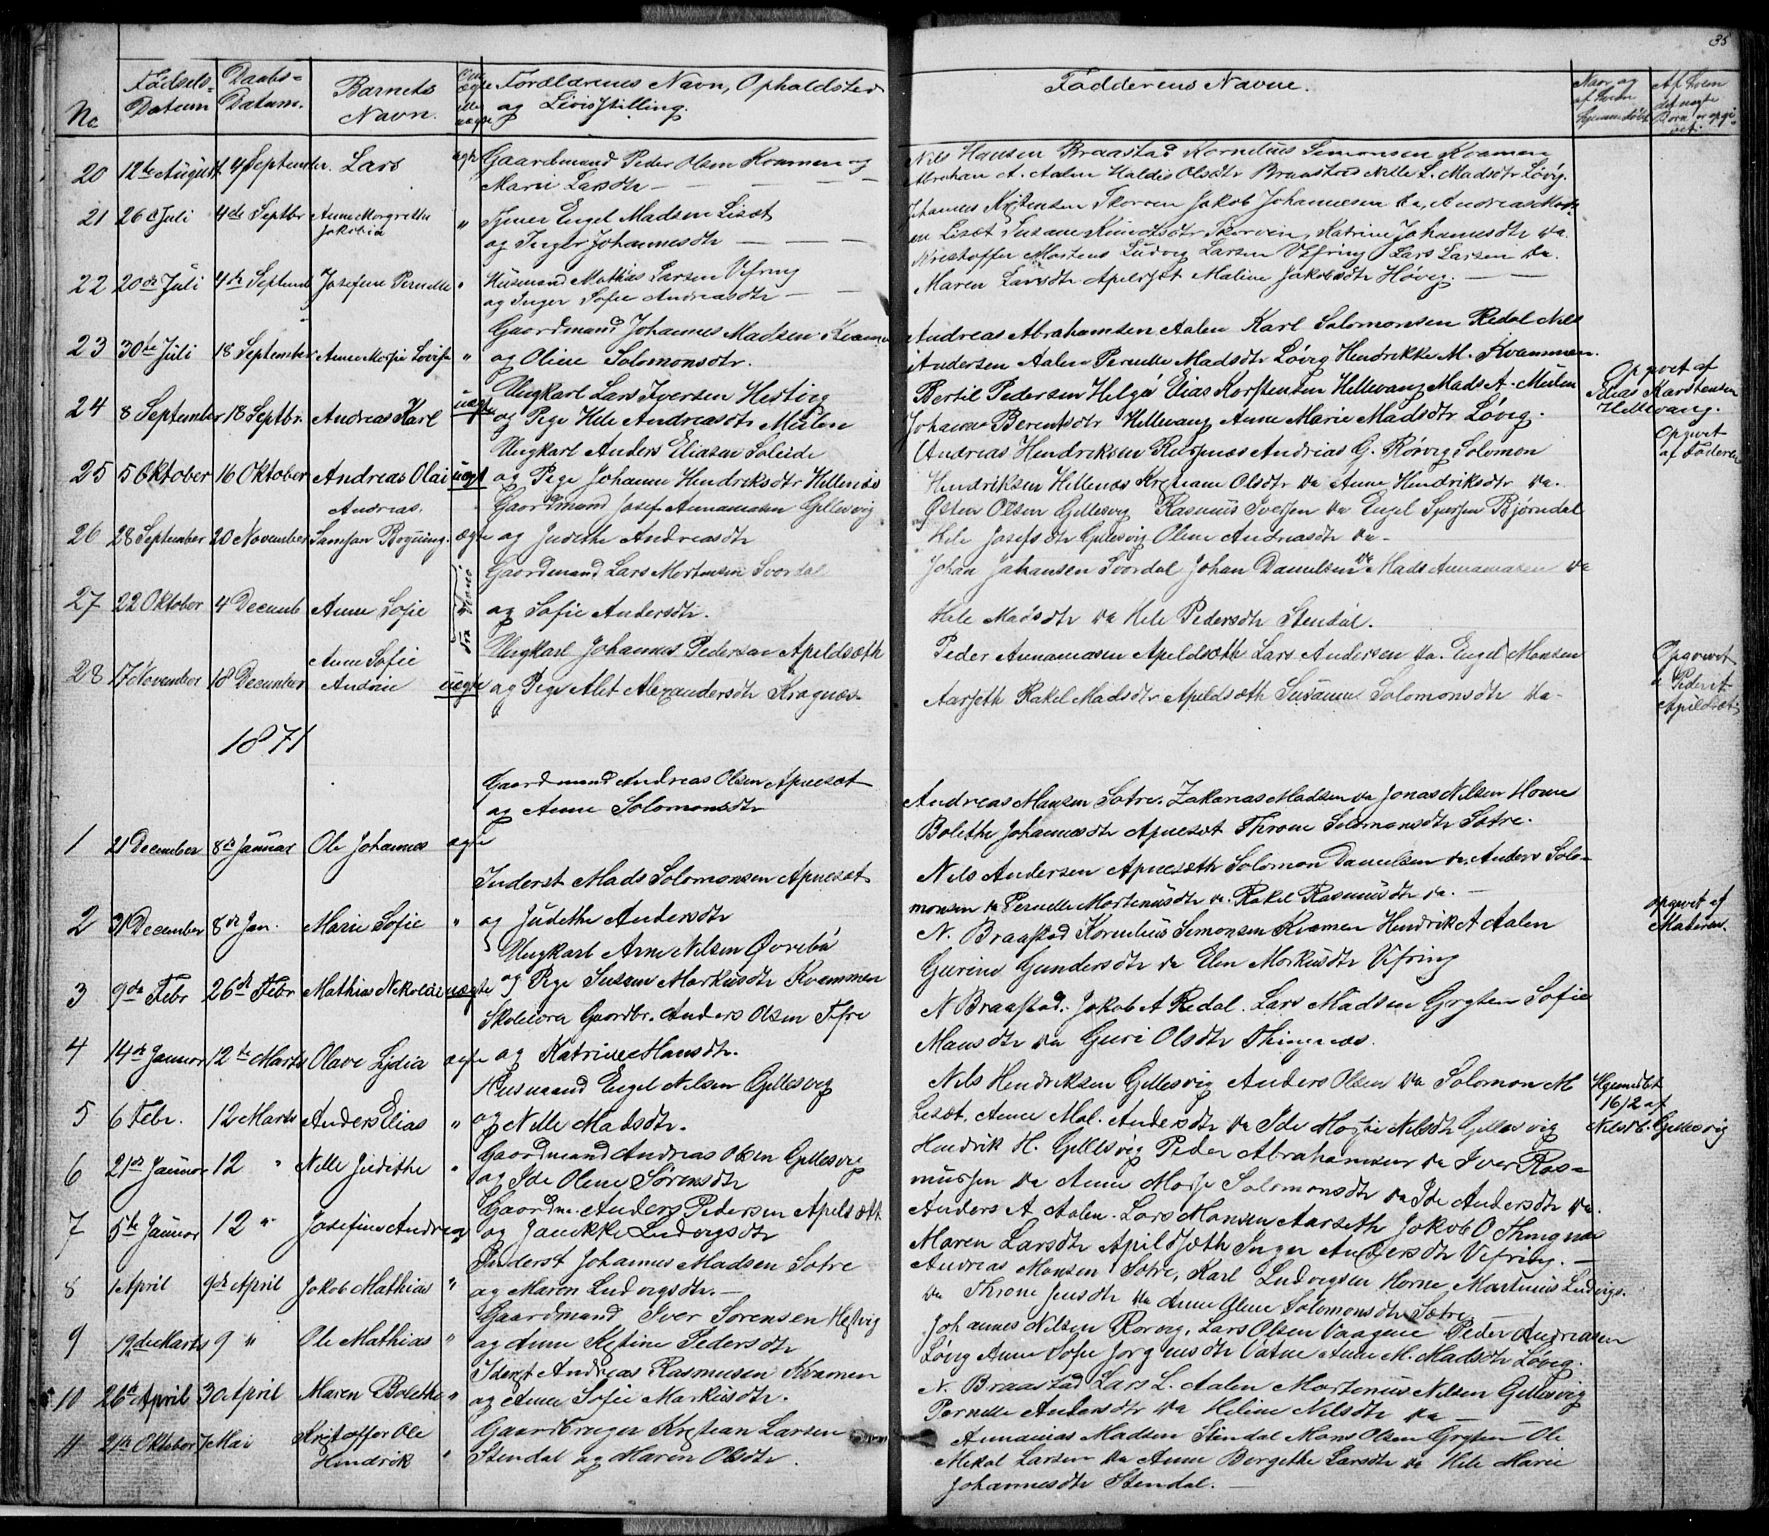 35
No
Fødsels-
Datum
Daabs-
Datum.
Barnets
Navn.
Om
ægte
eller
uægte
Forældrenes Navn, Opholdsted
og Livisstilling.
Fadderens Navne.
Naar og
af hvem
hjemmedøbt
Af hvem
det uægte
Barn er opgi-
vet.
20 12te August 4 September. Lars ægte Gaardmand Peder Olsen Kvamen og
Marie Larsdtr
Nils Hansen Braastad Kornelius Simonsen Kvamen
Abraham A. Aalen Haldis Olsdtr Braastad Nille L. Madsdtr Løvig.
21 26 Juli 4de Septbr Anne Margrethe
Jakobia
" Tjener Engel Madsen Lisæt
og Inger Johannesdtr
Johannes Kristensen Skorven Jakob Johannesen da, Andreas Mads-
en Lisæt Susane Knudsdtr Skorven, Katrine Johannesdtr da.
22 20de Juli 4de Septemb Josefine Pernelle " Husmand Mathias Larsen Vefring
og Inger Sofie Andreasdtr
Kristoffer Mortens Ludvig Larsen Vefring Lars Larsen da.
Maren Larsdtr Apeldsæt Maline Jakobsdtr Høvig.
23 30te Juli 18 September Anne Marie Lovise " Gaardmand Johannes Madsen Kvamen
og Oline Solomonsdtr.
Andreas Abrahamsen Aalen Karl Solomonsen Redal Nils
Andersen Aalen Pernelle Madsdtr Løvig Hendrikke M. Kvammen.
24 8 September 18 Septbr. Andreas Karl uægte Ungkarl Lars Iversen Hestvig
og Pige Hele Andreasdtr Mulen
Bertil Pedersen Helge Elias Karstensen Hellevang Mads A. Mulen
Johanne Berentsdtr Hellevang Anne Marie Madsdtr Løvig.
Opgivet af
Elias Kardtensen
Hellevang.
25 5 Oktober 16 Oktober Andreas Olai uægt Ungkarl Anders Eliasen Soleide
og Pige Johanne Hendriksdtr Hellenæs
Andreas Hendriksen Rusnæs Andrias G. Rørvig Solomon
Hendriksen Hellenæs Kristiane Olsdtr da Anne Hendriksdtr da.
Opgivet
af Faderen
26 28 September 20 November Andreas.
Samson Baguing. ægte Gaardmand Josef Annanæasen Gillesvig
og Judithe Andreasdtr
Østen Olsen Gillesvig Rasmus Iversen da Engel Iversen Bjørndal
Hele Josefsdtr Gillesvig Oline Andreasdtr da.
27 22 Oktober 4 Decemb Anne Sofie Gaardmand Lars Mortensen Svordal
og Sofie Andersdtr.
Johan Johansen Svordal Johan Danielsen da Mads Annaniasen da
Hele Madsdtr da Hele Pedersdtr Stendal.
28 17 November 18 December Anne Sofie
Andrine uægte Ungkarl Johannes Pedersen Apeldsæth
og Pige Alet Alexandersdtr Kragnæs
Peder Annaniasen Apeldsæth Lars Andersen da. Engel Monsen
Aarseth Rakel Madsdtr Apeldsæth Susanne Solomonsdtr da
Opgivet
Peder A
Apeldsæt.
1871
1 21 December 8de Januar Ole Johannes ægte Gaardmand Andreas Olsen Apnesæt
og Anne Solomonsdtr
Andreas Monsen Sotre. Zakarias Madsen da Jonas Nilsen Horne
Bolethe Johannesdtr Apnesæt Throne Solomonsdtr Sotre.
2 31 December 8de Jan. Marie Sofie " Inderst Mads Solomonsen Apnesæt
og Judithe Andersdtr
Nils Andersen Apnesæth Solomon Danielsen da. Anders Solo-
monsen da Pernelle Mortensdtr da. Rakel Rasmusdtr da.
3 9de Febr 26de Febr Mathias Nikolai uægte Ungkarl Arne Nilsen Øvrebø
og Pige Susan Markusdtr Kvammen
N. Braastad Kornelius Simonsen Kvamen Hendrik A Aalen
Gurine Gundersdtr da Elen Markusdtr Vefring
opgivet af
Moderen.
4 14de Januar 12te Marts Olave Lydia ægte Skolelærer Gaardbr. Anders Olsen
og Katrine Mansdtr.
N Braastad. Jakob A Redal. Lars Madsen Grytten Sofie
Mansdtr da Guri Olsdtr Thingnæs.
5 6 Febr. 12 Marts Anders Elias " Husmand Engel Nilsen Gillesvig
og Nelle Madsdtr.
Nils Hendriksen Gillesvig Anders Olsen da Solomon M
Lisæt, Anne Mal. Andersdtr da Ide Marie Nilsdtr Gillesvig
Hjemmedøbt
16/2 af
Gillesvig
6 21de Januar 12 " Nille Judithe " Gaardmand Andreas Olsen Gillesvig
og Ide Oline Sørensdtr
Hendrik H. Gillesvig Peder Abrahamsen da Iver Ras-
mussen da Anne Marie Solomonsdtr da Ide Andersdtr da.
7 5te Januar 12 " Josefine Andrea Gaardm. Anders Pedersen Apeldsætt
og Janikke Ludvigsdtr
Anders A Aalen. Lars Monsen Aarseth Jakob O Thingnæs
Maren Larsdtr Apildsæth Inger Andersdtr Vefring.
8 1 April 9de April Jakob Mathias " Inderst Johannes Madsen Sotre
og Maren Ludvigsdtr.
Andreas Monsen Sotre, Karl Ludvigsen Horne Martinus Ludvigs.
da Throne Jensdtr da Anne Oline Solomonsdtr Sotre
9 19de Marts 9 " Ole Mathias " Gaardmand Iver Sørensen Hestvig
og Anne Kristine Pedersdtr
Johannes Nilsen Rorvig, Lars Olsen Vaagene Peder Andreasen
Løvig Anne Sofie Jørgensdtr Vatne Anne M. Madsdtr Løvig.
10 26de April 30 April Maren Bolethe " Inderst Andreas Rasmusen Kvamen
og Anne Sofie Markusdtr.
N. Braastad Lars L. Aalen Mortenus Nilsen Gillesvig
Pernelle Andersdtr da Heline Nilsdtr da
11 21de Oktober 7 Mai Kristoffer Ole
Hendrik " Gaardbruger Kristian Larsen
Stendal og Maren Olsdtr.
Annanias Madsen Stendal Mons Olsen Grytten Ole
Mikal Larsen da Anne Bergethe Larsdtr da Hele Marie
Johannesdtr Stendal.